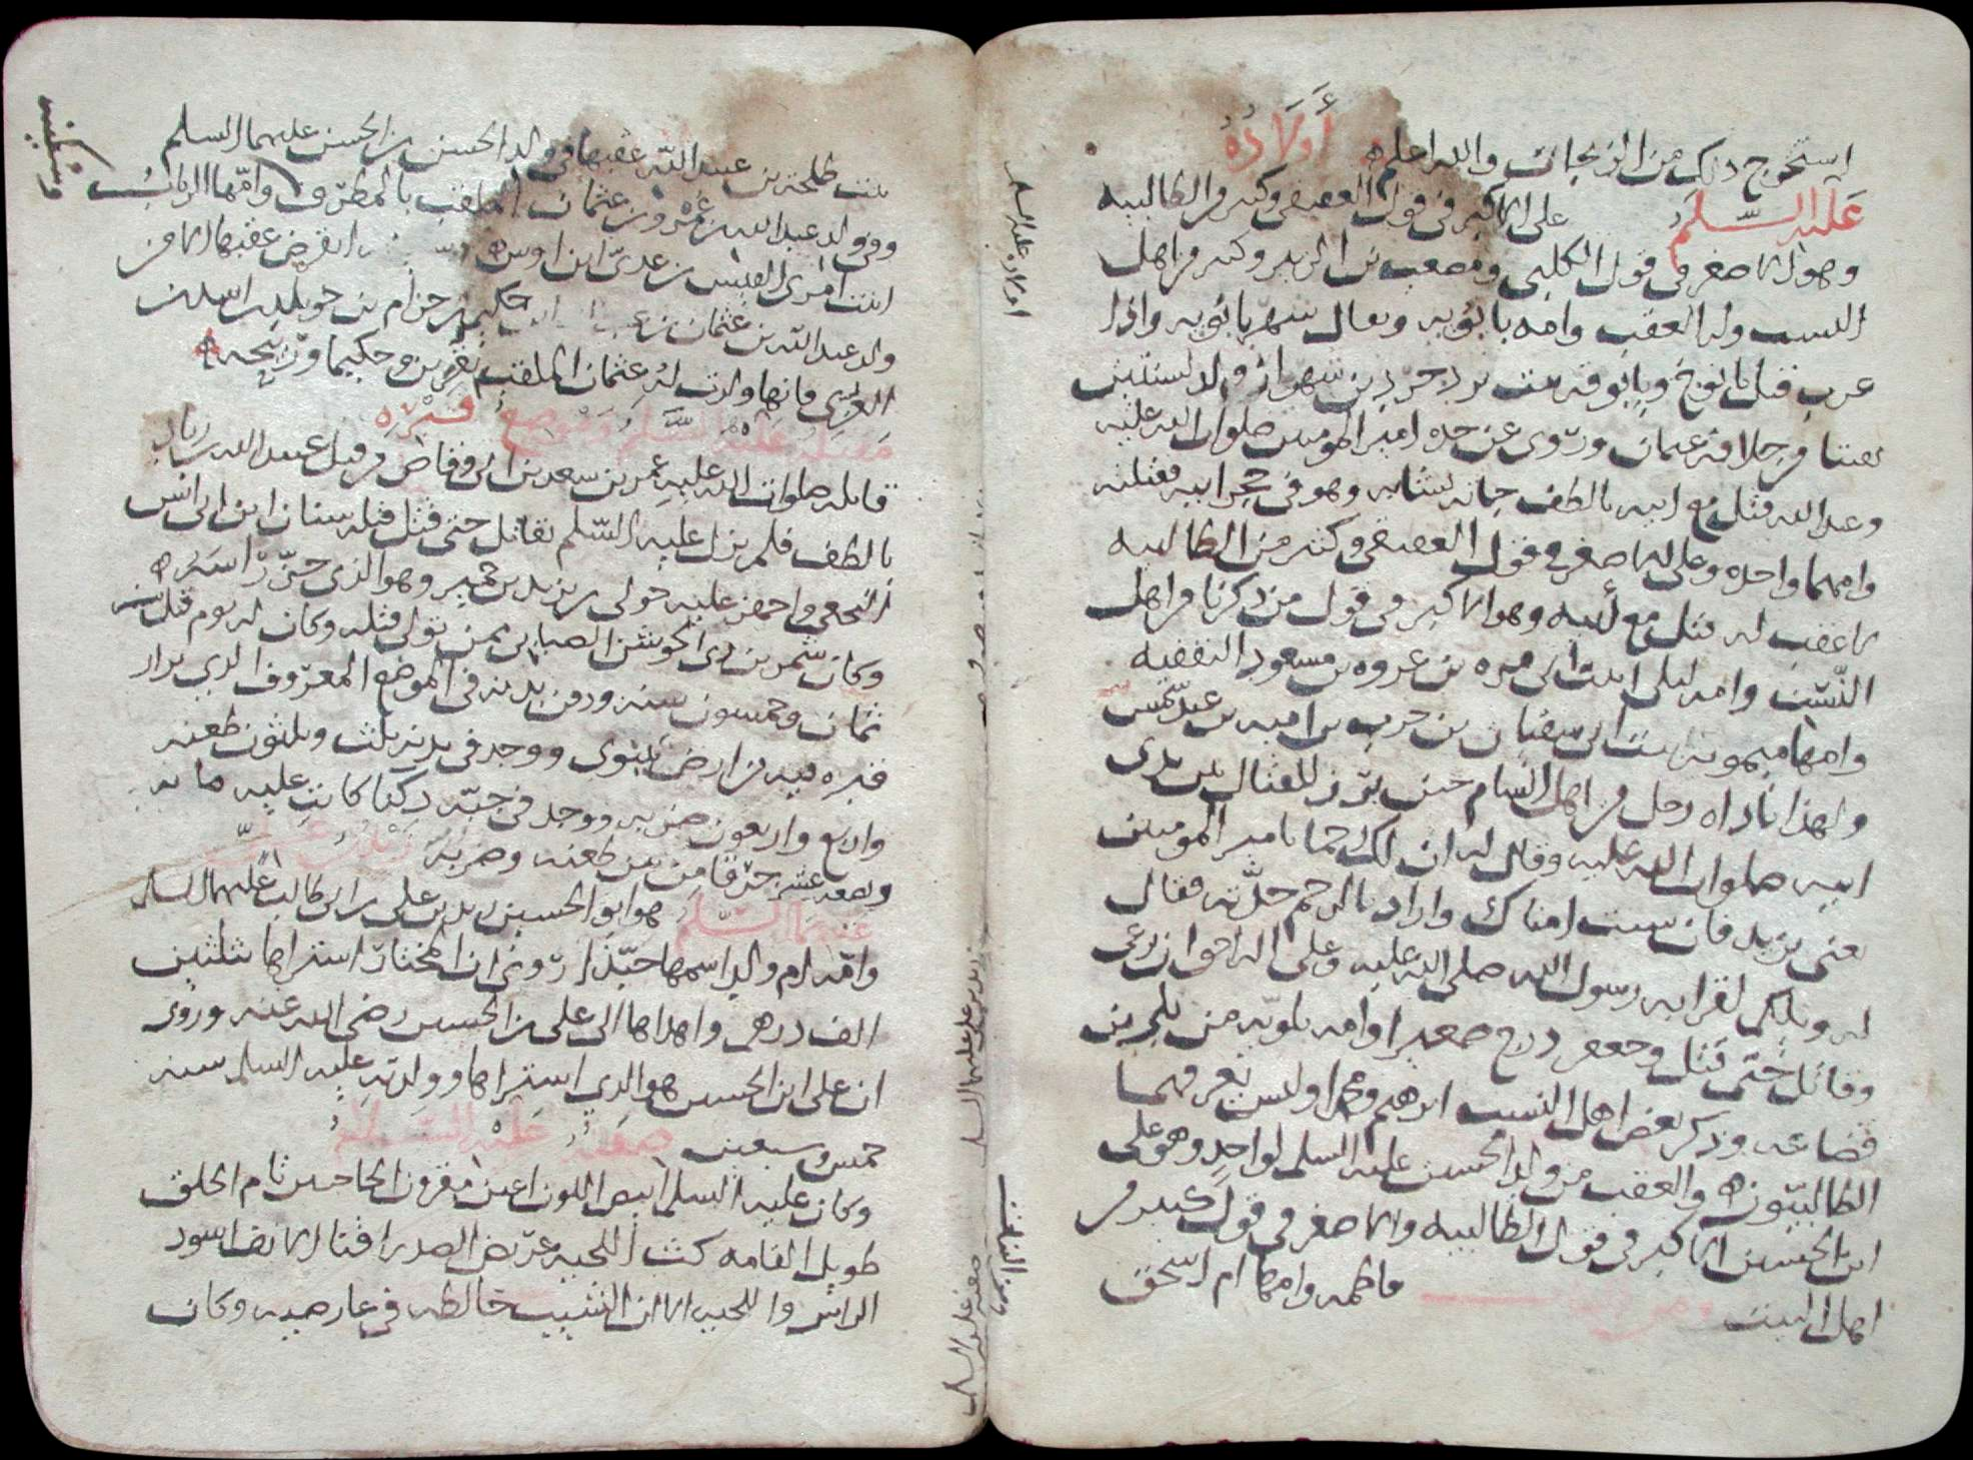 استخرج ذلك من الزيجات والله اعلم أَولَادُهُ
عَلَيْهِ السَّلَم على الاكبر في قول العقيقي وكثير من الطالبيه
وهو الاصغر في قول الكلبي ومصعب بن الزبير وكثير من اهل
النسب وله العقب وامه بانويه ويقال شهربانويه واذا
عرب قيل بانوج وبانوقه بنت يزدجرد بن شهريار ولد لسنتين
بقيتا من خلافة عثمان وروى عن جده امير المومنين صلوات الله عليه
وعبد الله قتل مع ابيه بالطف جاته نشابه وهو في حجر ابيه فقتلته
وامهما واحده وعلى الاصغر في قول العقيقي وكثير من الطالبيه
لا عقب له قتل مع ابيه وهو الاكبر في قول من ذكرنا من اهل
النسب وامه ليلى ابنت ابى مره بن عروه بن مسعود الثقفيه
وامها ميمونه ابنت ابى سفيان بن حرب بن اميه بن عبد شمس
ولهذا ناداه رجل من اهل الشام حين برز للقتال بين يدى
ابيه صلوات الله عليه وقال له ان لك رحما بامير المومنين
يعنى يزيد فان شيت امناك واراد بالرحم جدته فقال
له ويلك لقرابه رسول الله صلى الله عليه وعلى اله احق ان ترعى
وقاتل حتى قتل وجعفر درج صغيرا وامه بلويه من بلى بن
قضاعه وذكر بعض اهل النسب ابرهيم ومحمدا وليس يعرفهما
الطالبيون والعقب من ولد الحسين عليه السلم لواحد وهو على
ابن الحسين الاكبر في قول الطالبيه والاصغر في قول كثير من
اهل البيت ومن البنات فاطمه وامها ام اسحق
اولاده عليه السلم
ومن البنات
بنت طلحة بن عبيد الله عقبها في ولد الحسن بن الحسن عليهما السلم
وفي ولد عبد الله بن عمرو بن عثمان الملقب بالمطرف وامها الرباب
وسكينه
ابنت امرى القيس بن عدى ابن اوس انقرض عقبها الا من
ولد عبد الله بن عثمان بن حكيم بن حزام بن خويلد بن اسد بن
العزى فانها ولدت له عثمان الملقب بقرين وحكيما وربيحه
مَقْتَلُهُ عَلَيْهِ السَّلَم وَمَوْضِعُ قَبْرِه
قاتله صلوات الله عليه عمر بن سعد بن ابى وقاص من قبل عبيد الله بن زياد
بالطف فلم يزل عليه السلم يقاتل حتى قتل قتله سنان ابن ابى انس
النخعي واجهز عليه خولى بن يزيد بن حمير وهو الذى حز راسه
وكان شمر بن ذى الجوشن الضبابى ممن تولى قتله وكان له يوم قتل
ثمان وخمسون سنه ودفن بدنه في الموضع المعروف الذي يزار
قبره فيه من ارض نينوى ووجد في بدنه ثلث وثلثون طعنه
واربع واربعون ضربه ووجد في جبته دكنا كانت عليه مايه
وبضعه عشر خرقا من بين طعنه وضربة زَيْدُ بْنُ عَلِيّ
عَلَيْهِمَا السَّلَم هو ابو الحسين زيد بن على بن ابى طالب عليهما السلم
وامه ام ولد اسمها حيدا روى ان المختار اشتراها بثلثين
الف درهم واهداها الى على بن الحسين رضى الله عنه وروى
ان على ابن الحسين هو الذي اشتراها وولدته عليه السلم سنه
خمس وسبعين صِفَتُهُ عَلَيْهِ السَّلَم
وكان عليه السلم ابيض اللون اعين مقرون الحاجبين تام الخلق
طويل القامه كث اللحيه عريض الصدر اقنا الانف اسود
الراس واللحيه الا ان الشيب خالطه في عارضيه وكان
زيد بن على عليهما السلم
صفته عليه السلم